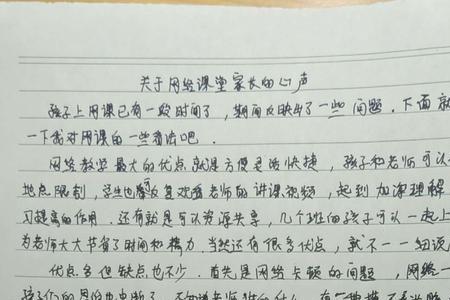 关于网络课堂家长的心声
孩子上网课已有一段时间了，期间反映出了一些问题．下面就
一下我对网课的一些看法吧．
网络教学最大的优点就是方便灵活快捷，孩子和老师可以
地点限制，学生也可反复观看老师的讲课视频，起到加深理解
习提高的作用．还有就是可以资源共享，几个班的孩子可以一起上
为老师大大节省了时间和精力．当然还有很多优点，就不一一细说
优点多但缺点也不少．首先是网络卡顿的问题，网络一
孩们的思路也中断了